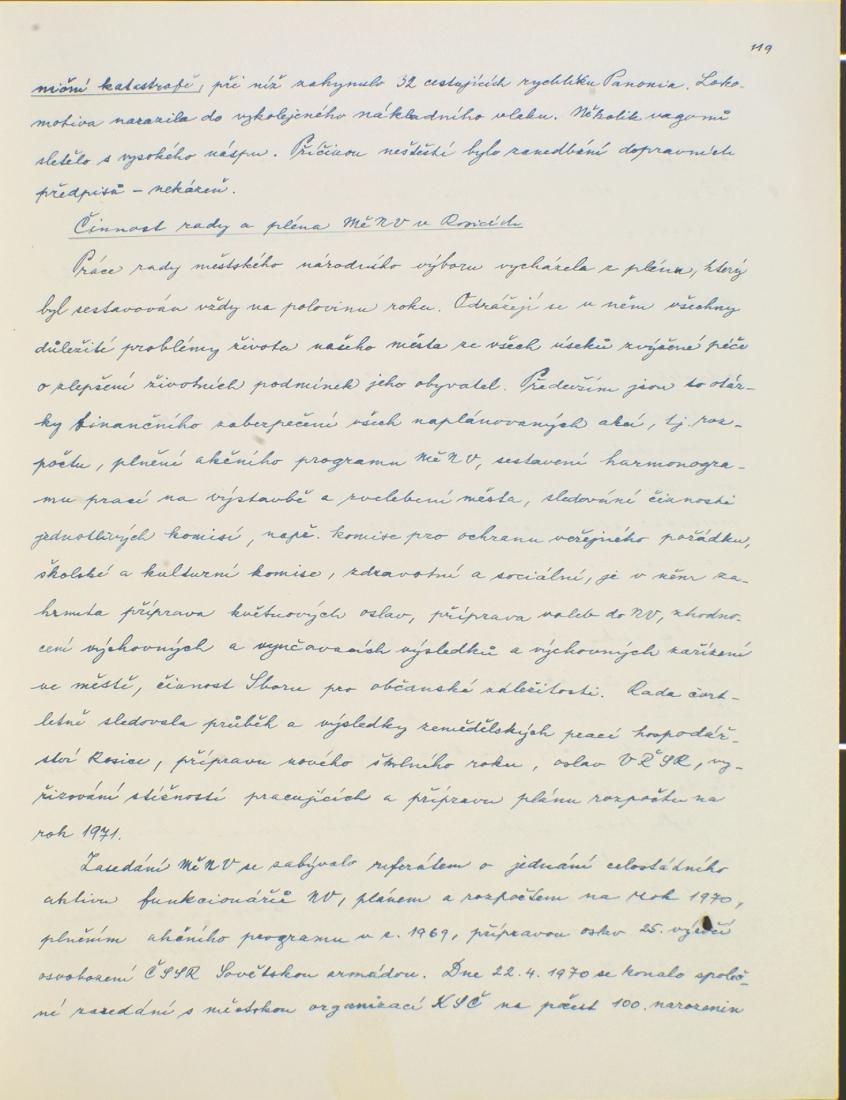 119
niční katastrofě, při níž zahynulo 32 cestujících rychlíku Panonia. Loko-
motiva narazila do vykolejeného nákladního vlaku. Několik vagonů
sletělo s vysokého náspu. Příčinou neštěstí bylo zanedbání dopravních
předpisů – nekázeň.
Činnost rady a pléna MěNV v Rosicích
Práce rady městského národního výboru vycházela z plánu, který
byl sestavován vždy na polovinu roku. Odrážejí se v něm všechny
důležité problémy života našeho města ze všech úseků zvýšené péče
o zlepšení životních podmínek jeho obyvatel. Především jsou to otáz-
ky finančního zabezpečení všech naplánovaných akcí, tj. roz-
počtu, plnění akčního programu MěNV, sestavení harmonogra-
mu prací na výstavbě a zvelebení města, sledování činnosti
jednotlivých komisí, např. komise pro ochranu veřejného pořádku,
školské a kulturní komise, zdravotní a sociální, je v něm za-
hrnuta příprava květnových oslav, příprava voleb do NV, zhodno-
cení výchovných a vyučovacích výsledků a výchovných zařízení
ve městě, činnost Sboru pro občanské záležitosti. Rada čtvrt-
letně sledovala průběh a výsledky zemědělských prací hospodář-
ství Rosice, přípravu nového školního roku, oslav VŘSR, vy-
řizování stížností pracujících a přípravu plánu rozpočtu na
rok 1971.
Zasedání MěNV se zabývalo referátem o jednání celostátního
aktivu funkcionářů NV, plánem a rozpočtem na rok 1970,
plněním akčního programu v r. 1969, přípravou oslav 25. výročí
osvobození ČSSR Sovětskou armádou. Dne 22.4.1970 se konalo společ-
né zasedání s městskou organizací KSČ na počest 100. narozenin